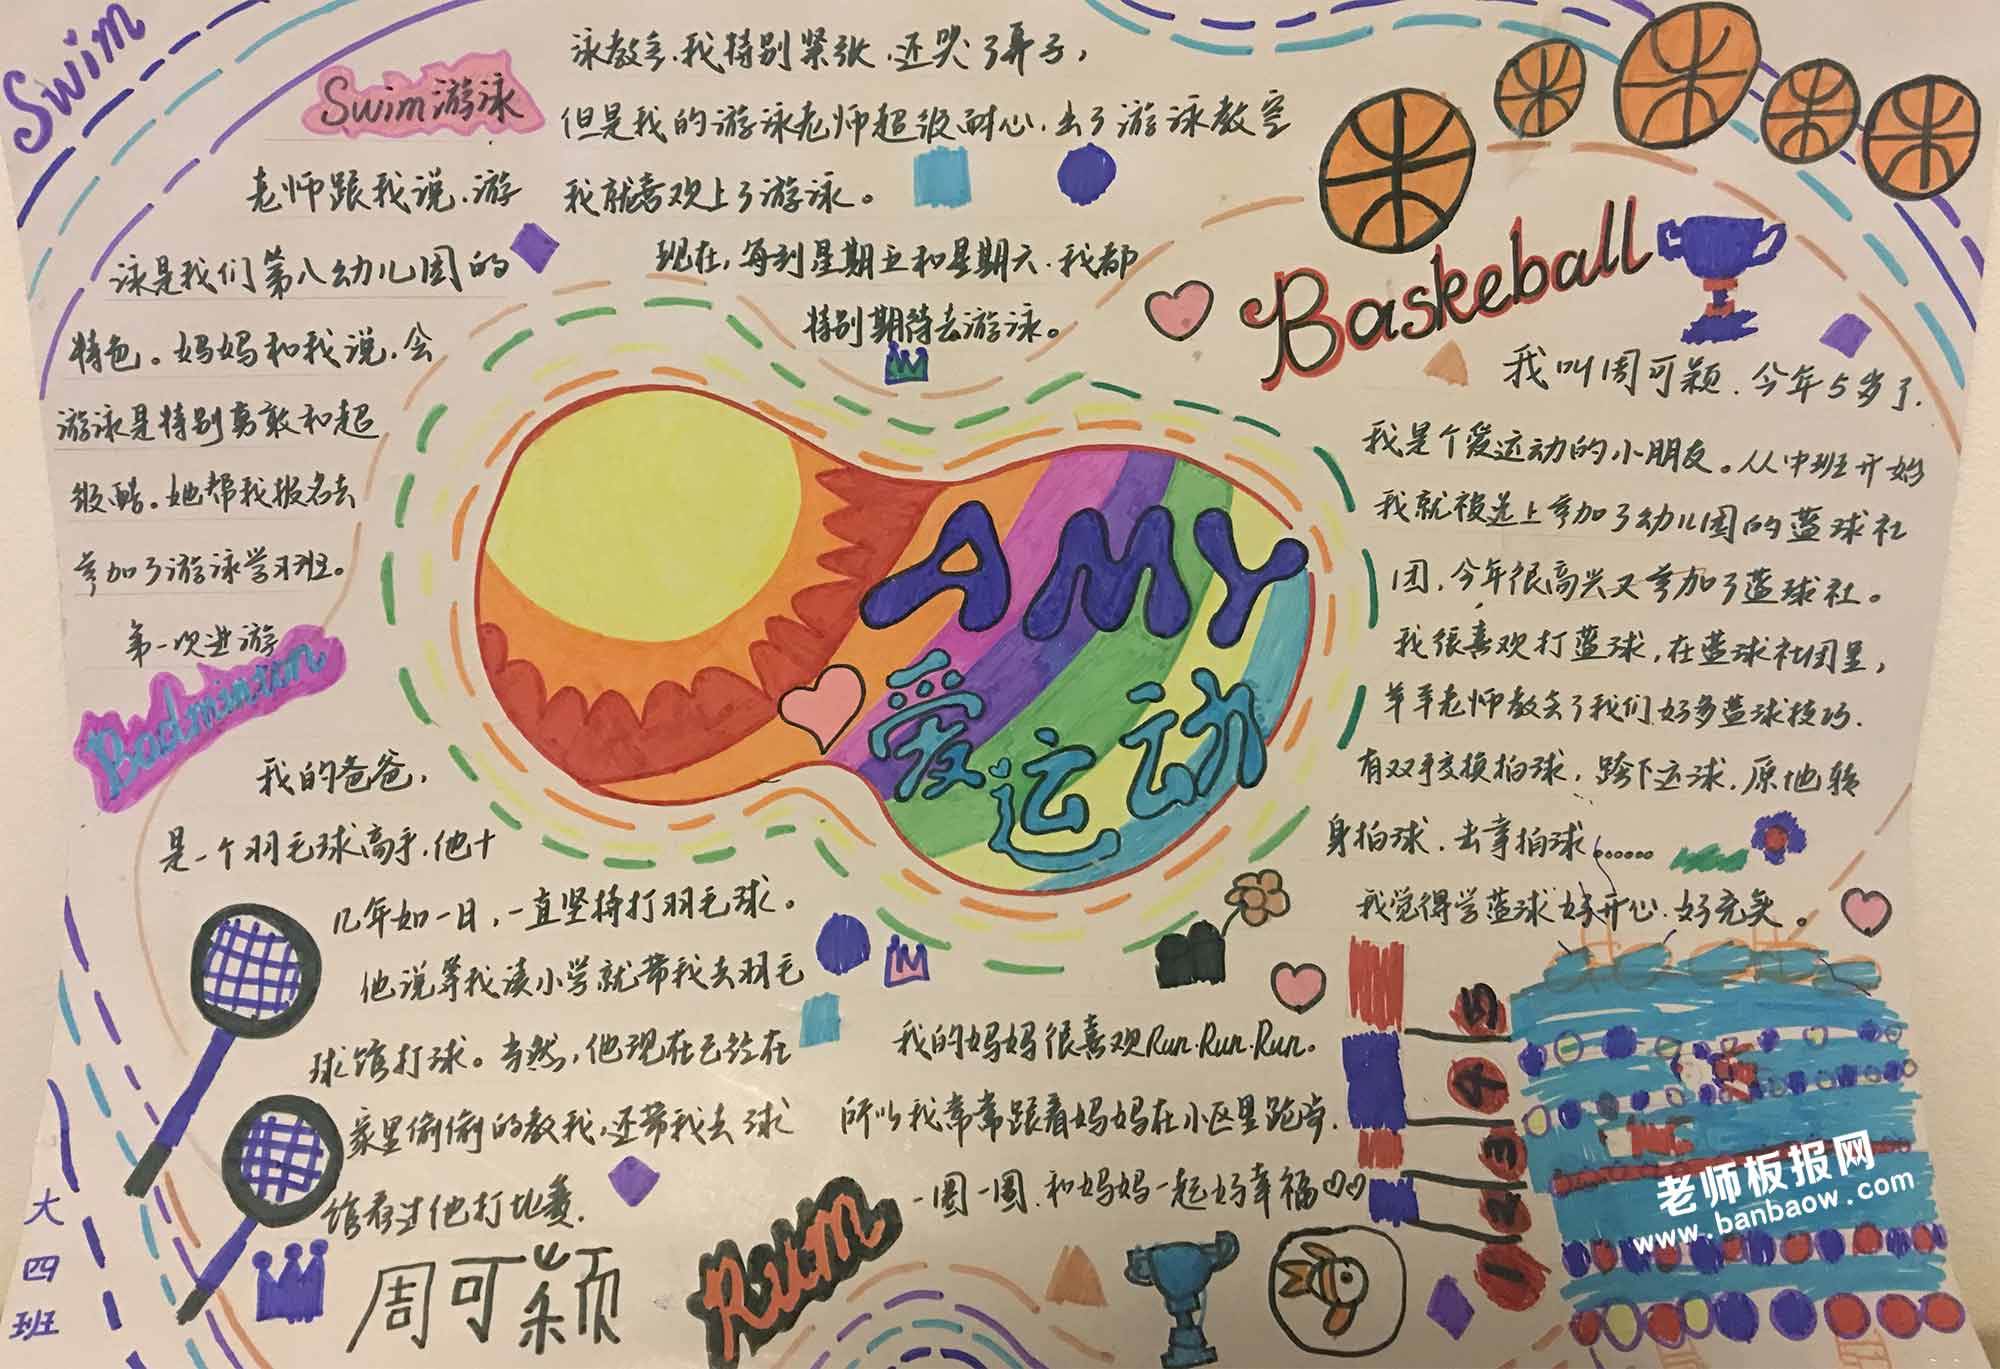 Swim
Swim游泳
老师跟我说.游
泳是我们第八幼儿园的
特色。妈妈和我说.会
游泳是特别勇敢和超
级酷。她帮我报名去
参加了游泳学习班。
第一次进游
泳教室.我特别紧张.还哭了鼻子,
但是我的游泳老师超级耐心.出了游泳教室
我就喜欢上了游泳。
现在,每到星期五和星期六.我都
特别期待去游泳。
Baskeball
我叫周可颖.今年5岁了.
我是个爱运动的小朋友。从中班开始
我就被选上参加了幼儿园的蓝球社
团,今年很高兴又参加了蓝球社。
我很喜欢打蓝球,在蓝球社团里,
羊羊老师教会了我们好多蓝球技巧.
有双手交换拍球,跨下运球,原地转
身拍球.去掌拍球……
我觉得学蓝球好开心.好充实。
AMY
爱运动
Badminton
我的爸爸,
是一个羽毛球高手.他十
几年如一日,一直坚持打羽毛球。
他说等我读小学就带我去羽毛
球馆打球。当然,他现在已经在
家里偷偷的教我,还带我去球
馆看过他打比赛.
我的妈妈很喜欢Run.Run.Run。
所以我常常跟着妈妈在小区里跑步.
一圈一圈.和妈妈一起好幸福
Run
周可颖
大四班
5
4
3
2
1
老师板报网
www.banbaow.com